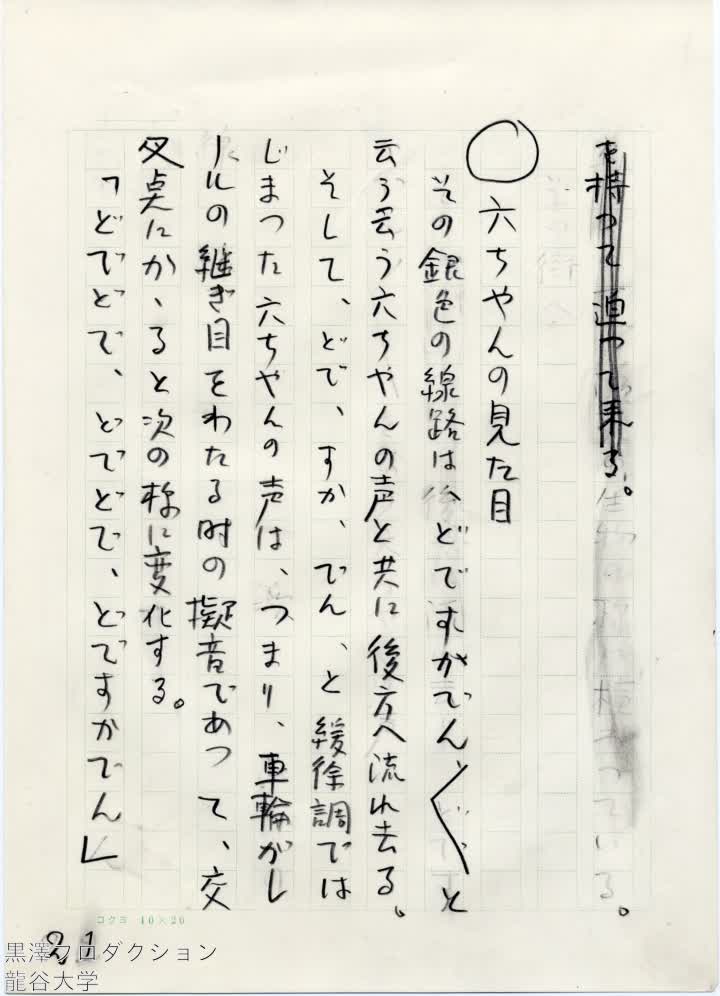 を持つて迫つて来る。
◯六ちやんの見た目
その銀色の線路は、どですかでん、〱と
云う云う六ちやんの声と共に後方へ流れ去る。
そして、どで、すか、でん、と緩徐調では
じまつた六ちやんの声は、つまり、車輪がレ
ールの継ぎ目をわたる時の擬音であつて、交
叉点にかゝると次の様に変化する。
「どでどで、どでどで、どですかでん」
コクヨ 10×20
21
黒澤プロダクション
龍谷大学